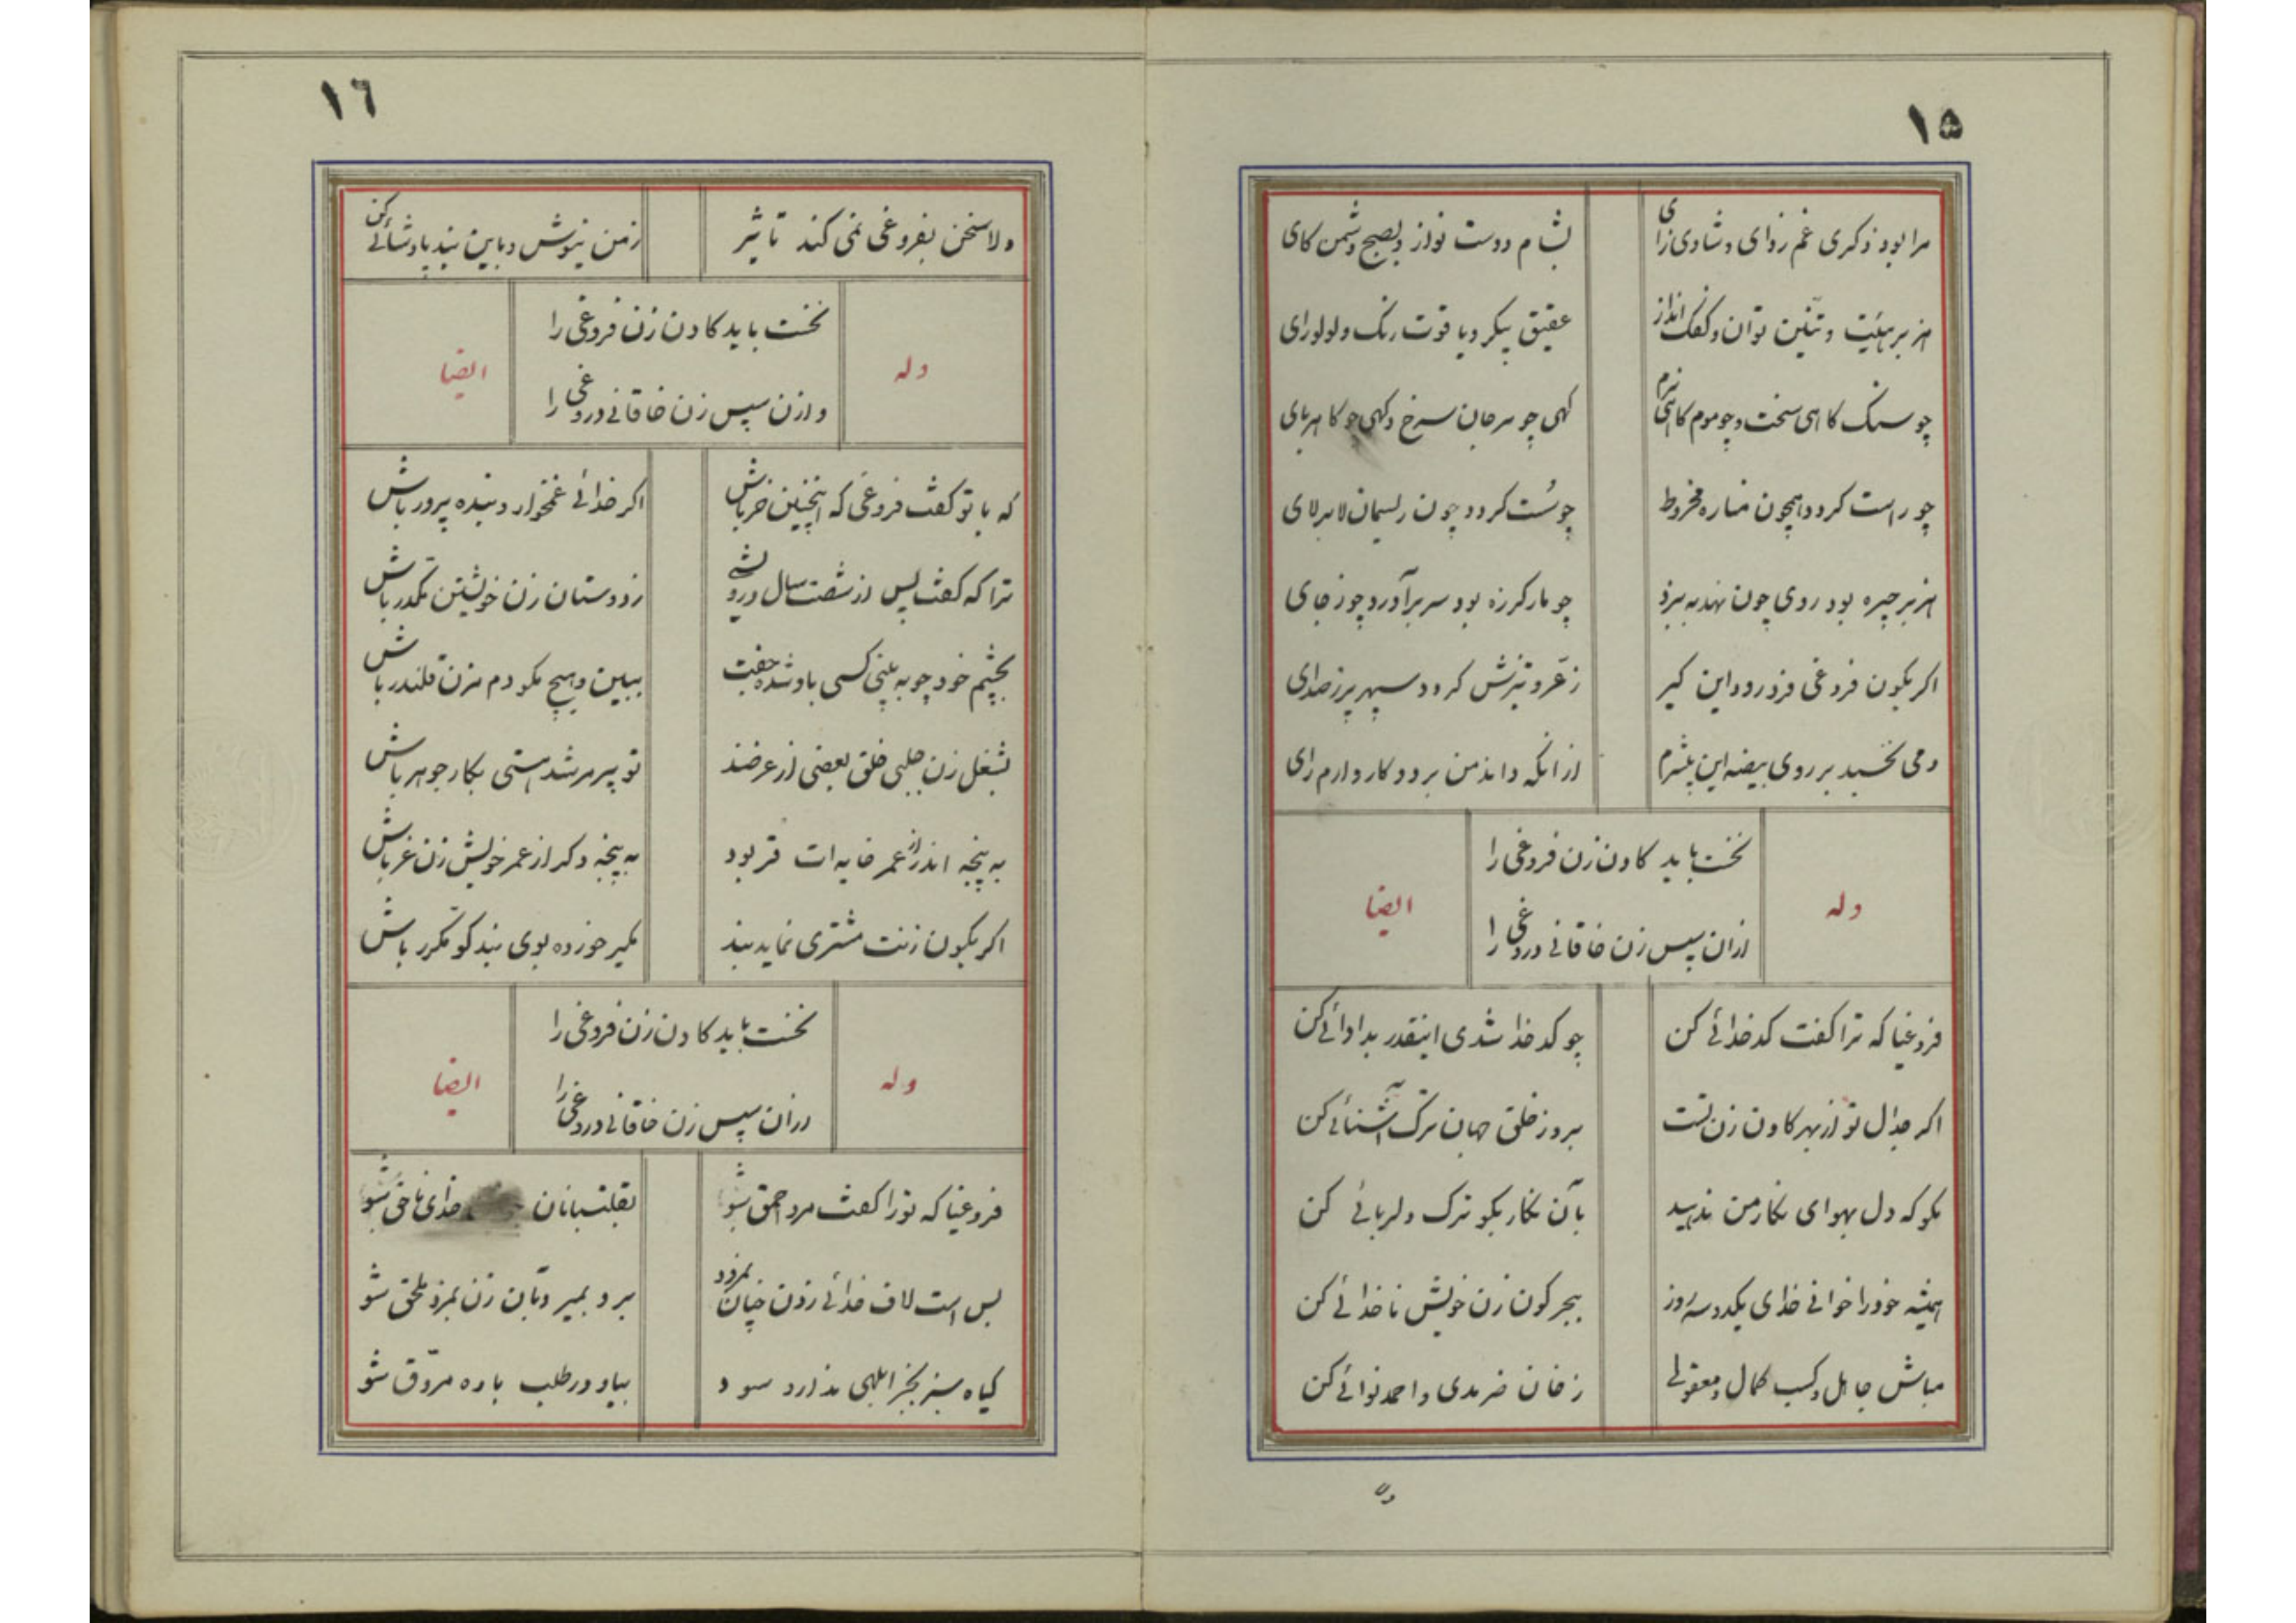 ۱۵
مرا بود ذکری غم زدای و شادی زای
بشام دوست نواز و بصبح دشمن کای
هزبر هیئت و تنین توان و کفک انداز
عقیق پیکر و یاقوت رنک و لولورای
چو سنک کاهی سخت و چو موم کاهی نرم
کهی چو مرجان سرخ و کهی چو کاهربای
چو راست کردد همچون مناره مخروط
چو سُست کردد چون ریسمان لابرلای
هزبر چیره بود روی چون نهد به نبرد
چو مار کرزه بود سر برآورد چو ز جای
اکر بکون فروغی فرو رود این کیر
ز عرّ و تیزش کردد سپهر پر ز صدای
دمی نخسبد بر روی بیضه این بیشرم
از انکه داند من بر دو کار دارم رای
وله
نخست باید کادن زن فروغی را
ازان سپس زن خاقانی دروغی را
ایضا
فروغیا که ترا کفت کدخدائی کن
چو کدخدا شدی اینقدر بداوائی کن
اکر جدال تو از بهر کادن زن تست
برو ز خلق جهان ترک آشنائی کن
بکو که دل بهوای نکار من ندهید
بآن نکار بکو ترک دلربائی کن
همیشه خود را خوانی خدای یکدو سه روز
ببحر کون زن خویش ناخدائی کن
مباش جاهل و کسب کمال و معقولی
ز خان ضریدی و احمد نوائی کن
۱۶
ولا سخن بفروغی نمی کند تاثیر
ز من نیوش و باین بند پادشائی کن
وله
نخست باید کادن زن فروغی را
وازن سپس زن خاقانی دروغی را
ایضا
که با تو کفت فروغی که اینچنین خر باش
اکر خدائی غمخوار و بنده پرور باش
ترا که کفت پس از شصت سال درویشی
ز دوستان زن خویشتن مکدر باش
بچشم خود چو به بینی کسی باو شده جفت
ببین و هیچ مکو دم مزن قلندر باش
بشغل زن جلبی خلق بعضی از عرضند
تو پیر مرشد هستی بکار جوهر باش
به پنجه اندر از عمر خایه ات قر بود
به پنجه دکر از عمر خویش زن غر باش
اکر بکون زنت مشتری نماید بند
بکیر خورده بوی بند کو مکرر باش
وله
نخست باید کادن زن فروغی را
ازان سپس زن خاقانی دروغی را
ایضا
فروغیا که تورا کفت مرد احمق شو
بقلتبانان خدای ناحق شو
بس است لاف خدائی زدن چنان نمرود
برو بمیر و بآن زن بمزد ملحق شو
کیاه سبز بجز ابلهی ندارد سود
بیا و در طلب باده مروّق شو